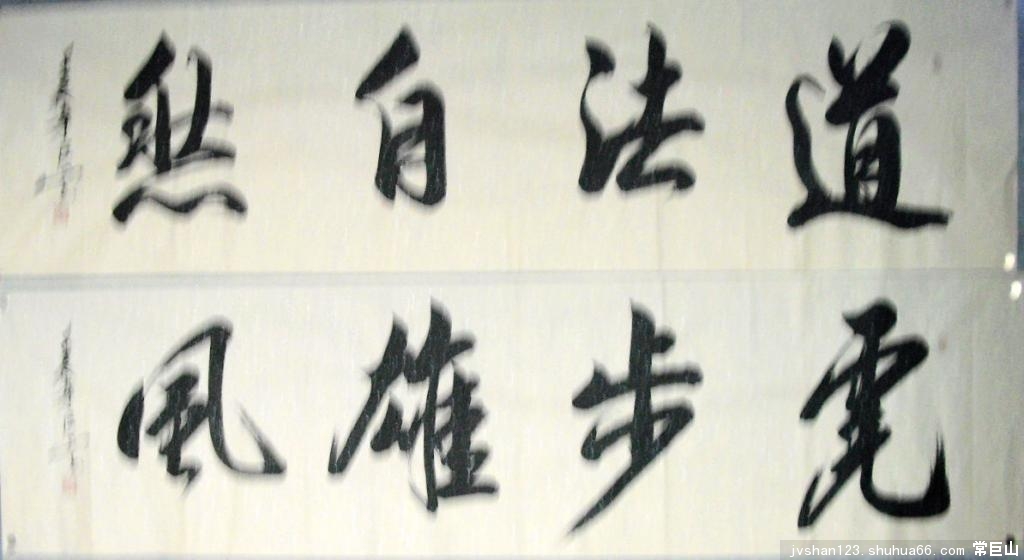 道法自然
虎步雄風
jvshan123.shuhua66.com 常巨山